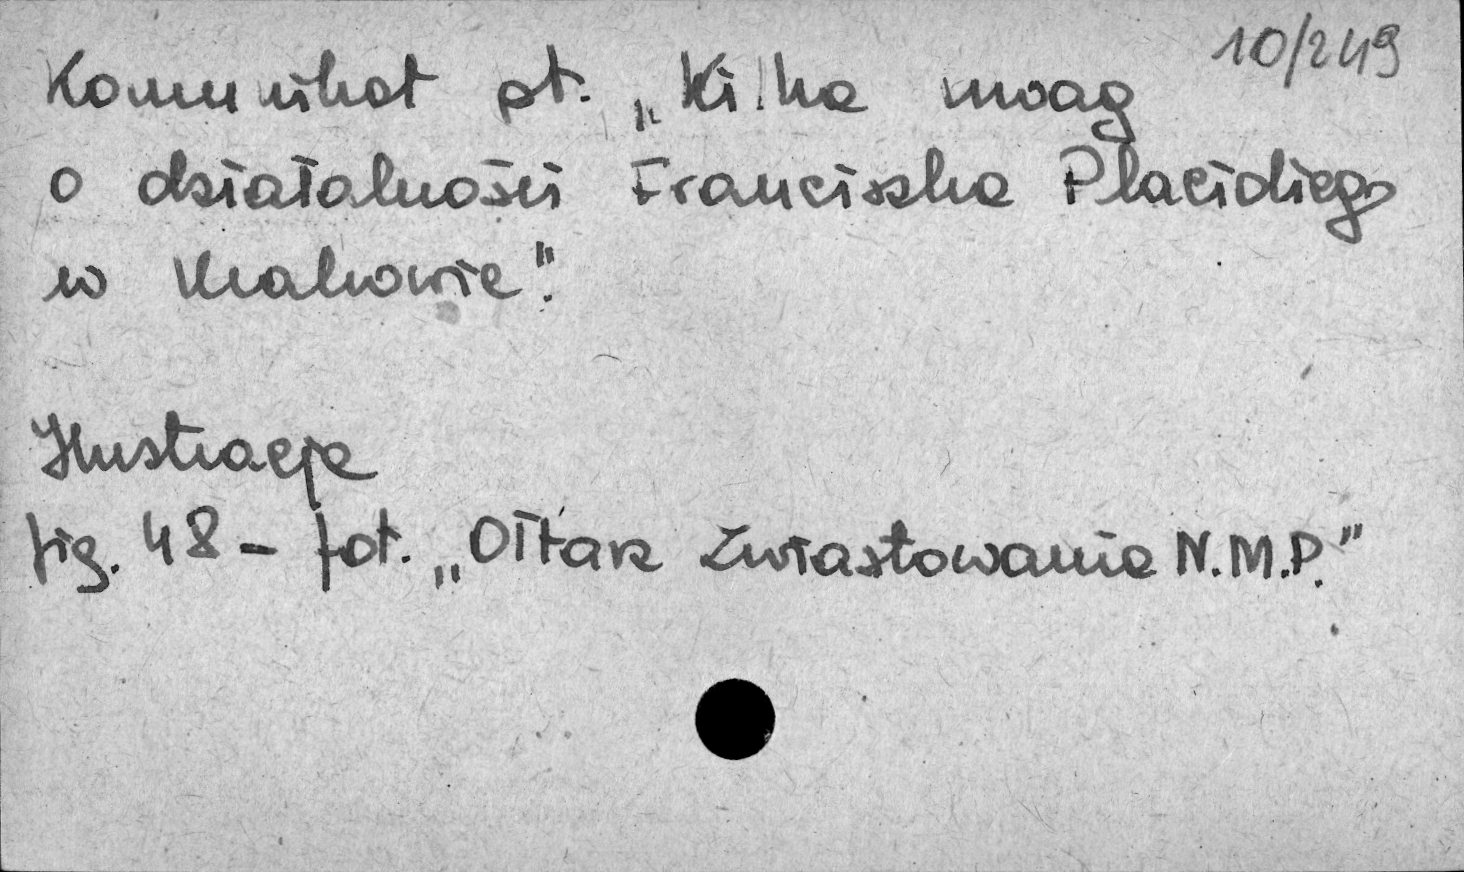 10/249
Komunikat pt. „Kilka uwag
o działalności Franciszka Placidiego
w Krakowie".
Ilustracje
fig. 48 – fot. „Ołtarz Zwiastowania N.M.P."